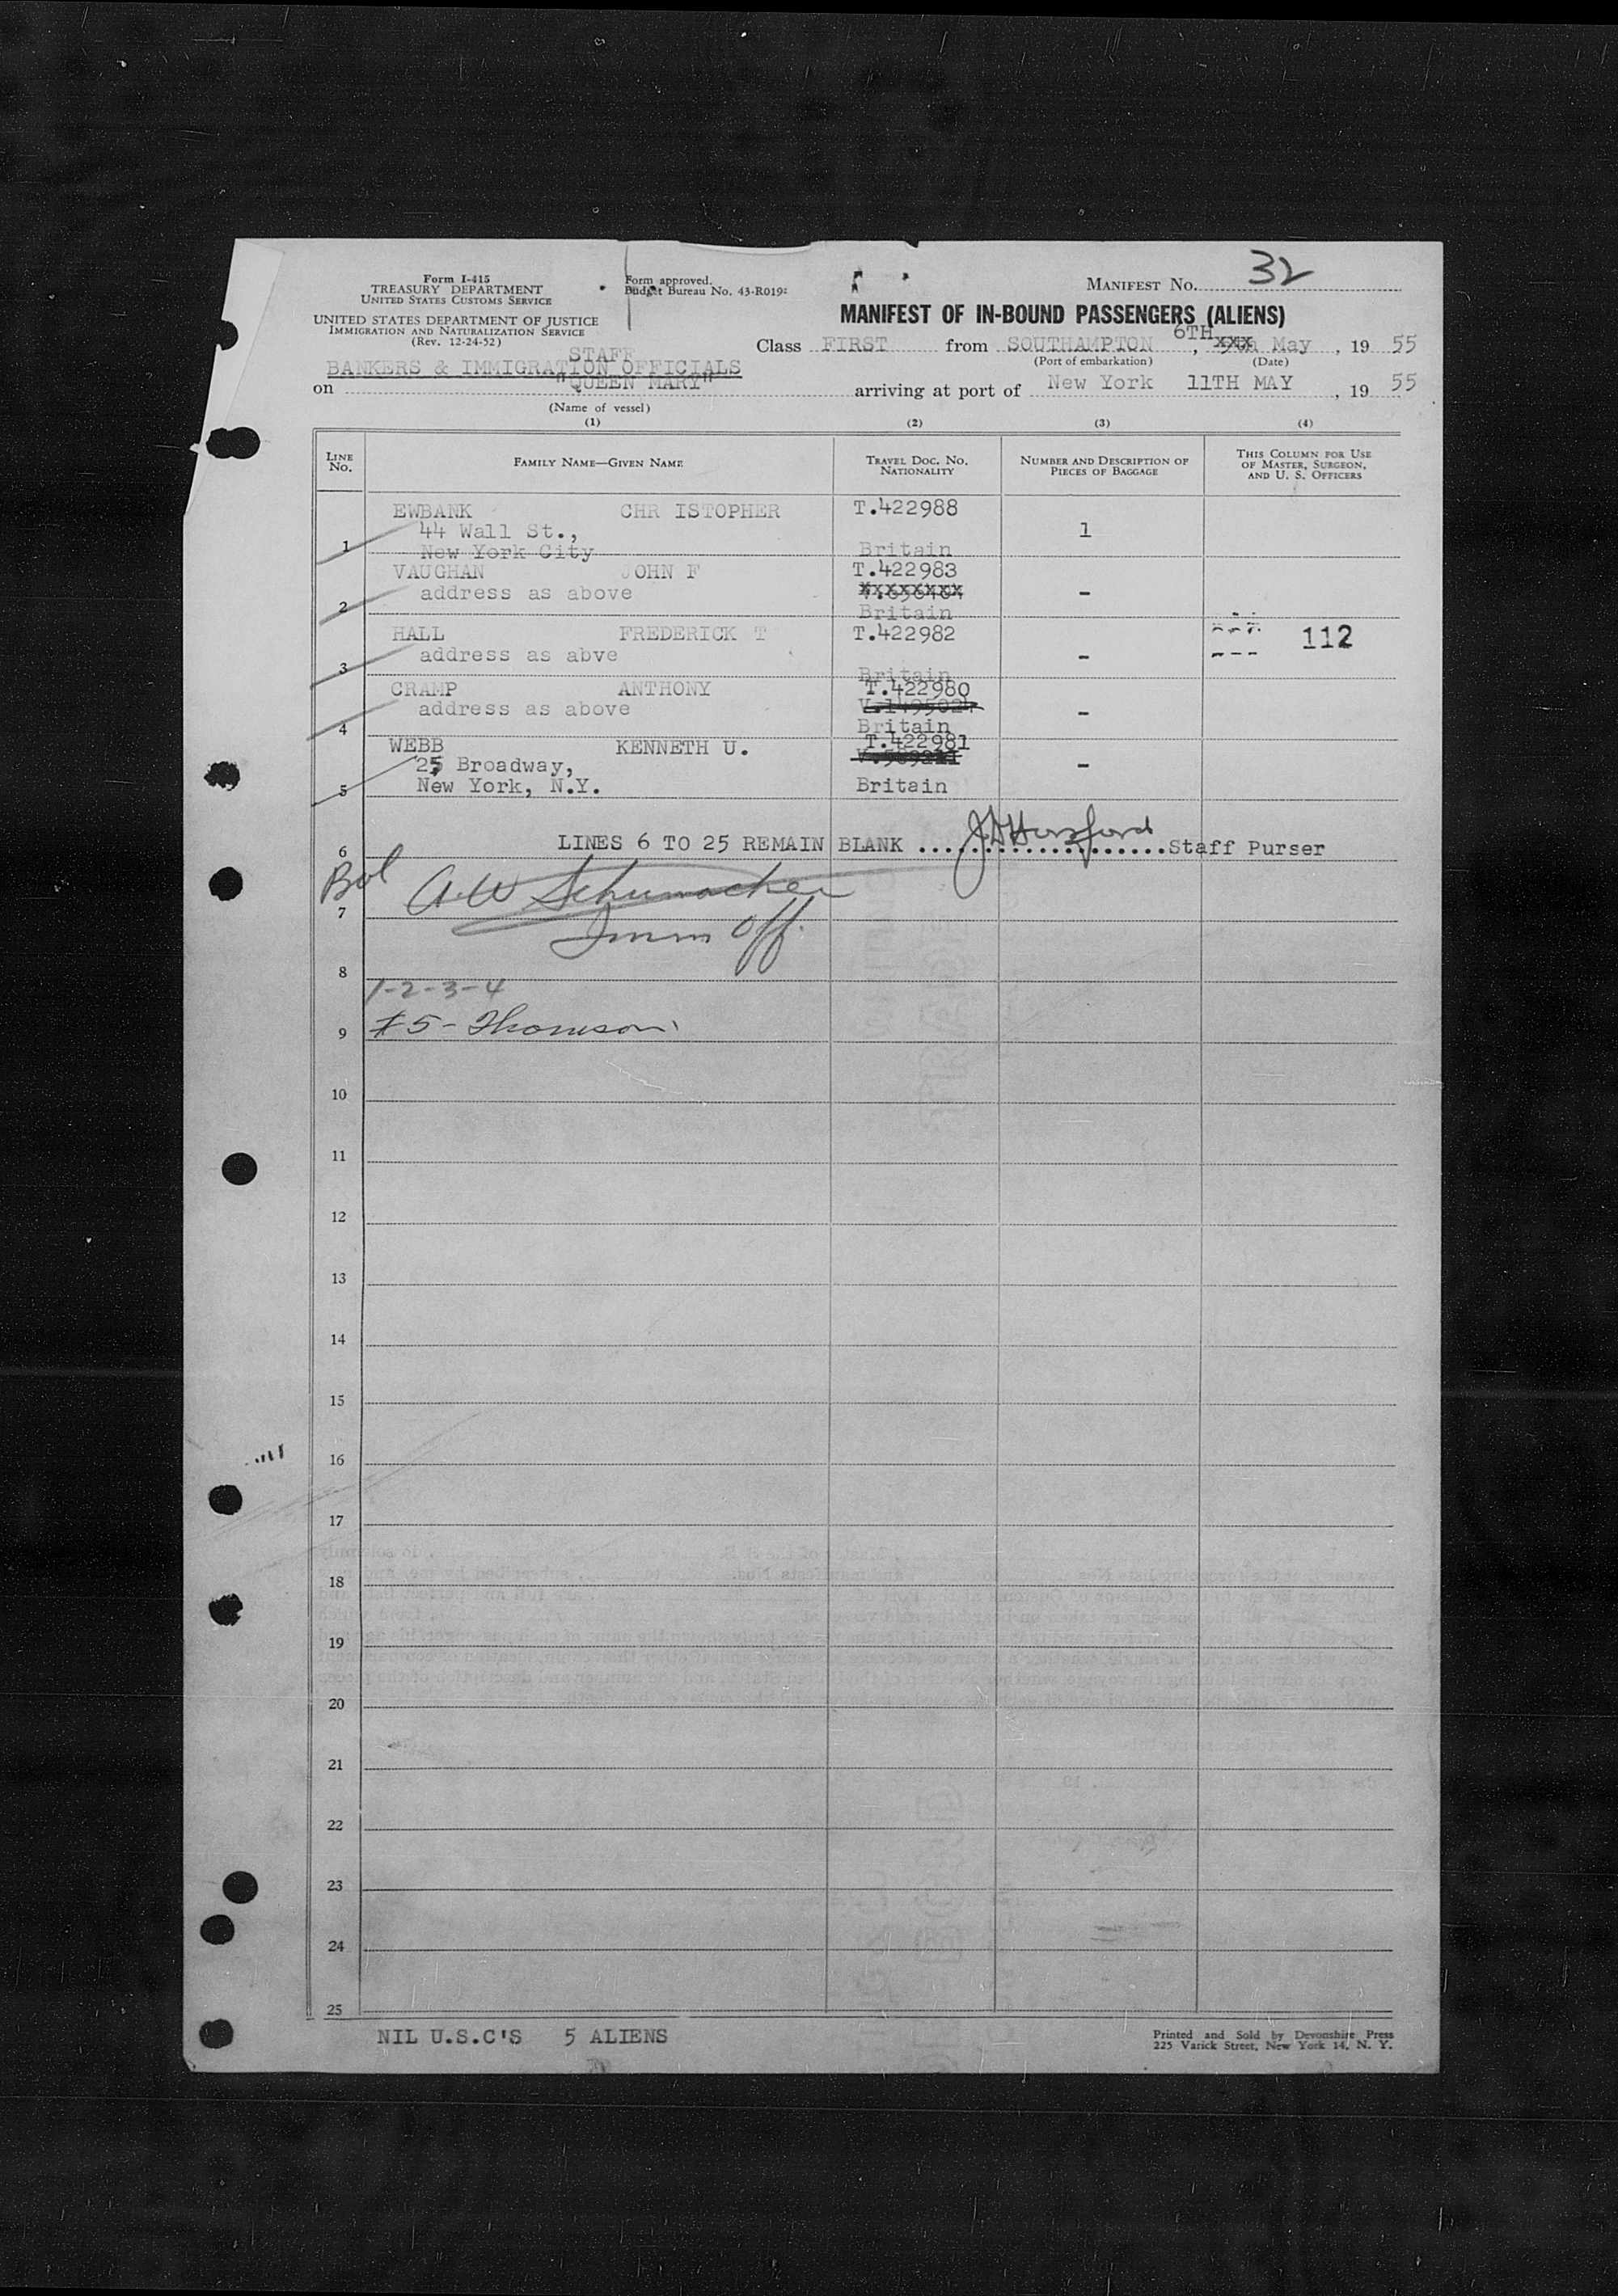 Form I-415
TREASURY DEPARTMENT
UNITED STATES CUSTOMS SERVICE
UNITED STATES DEPARTMENT OF JUSTICE
IMMIGRATION AND NATURALIZATION SERVICE
(Rev. 12-24-52)
Form approved.
Budget Bureau No. 43-R019
MANIFEST NO. 32
MANIFEST OF IN-BOUND PASSENGERS (ALIENS)
6TH
Class FIRST from SOUTHAMPTON , May , 19 55
(Port of embarkation) (Date)
STAFF
BANKERS & IMMIGRATION OFFICIALS
on "QUEEN MARY" arriving at port of New York 11TH MAY , 19 55
(Name of vessel)
(1) (2) (3) (4)
LINE No. FAMILY NAME—GIVEN NAME TRAVEL DOC. NO. NATIONALITY NUMBER AND DESCRIPTION OF PIECES OF BAGGAGE THIS COLUMN FOR USE OF MASTER, SURGEON, AND U. S. OFFICERS
EWBANK CHR ISTOPHER T.422988
44 Wall St., 1
1 New York City Britain
VAUGHAN JOHN F T.422983
address as above -
2 Britain
HALL FREDERICK T T.422982 112
address as abve -
3 Britain
CRAMP ANTHONY T.422980
address as above -
4 Britain
WEBB KENNETH U. T.422981
25 Broadway, -
5 New York, N.Y. Britain
LINES 6 TO 25 REMAIN BLANK ....................Staff Purser
6
Bol A.W Schumacher
7
Imm Off.
8
1-2-3-4
9 #5 - Thomson
10
11
12
13
14
15
16
17
18
19
20
21
22
23
24
25
NIL U.S.C'S 5 ALIENS
Printed and Sold by Devonshire Press
225 Varick Street, New York 14, N. Y.